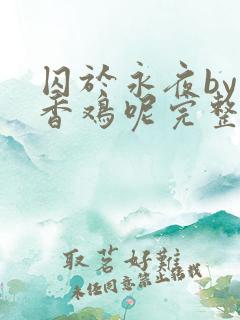 囚於永夜by
香鸡呢完整
取茗好難
未任同意禁止转我